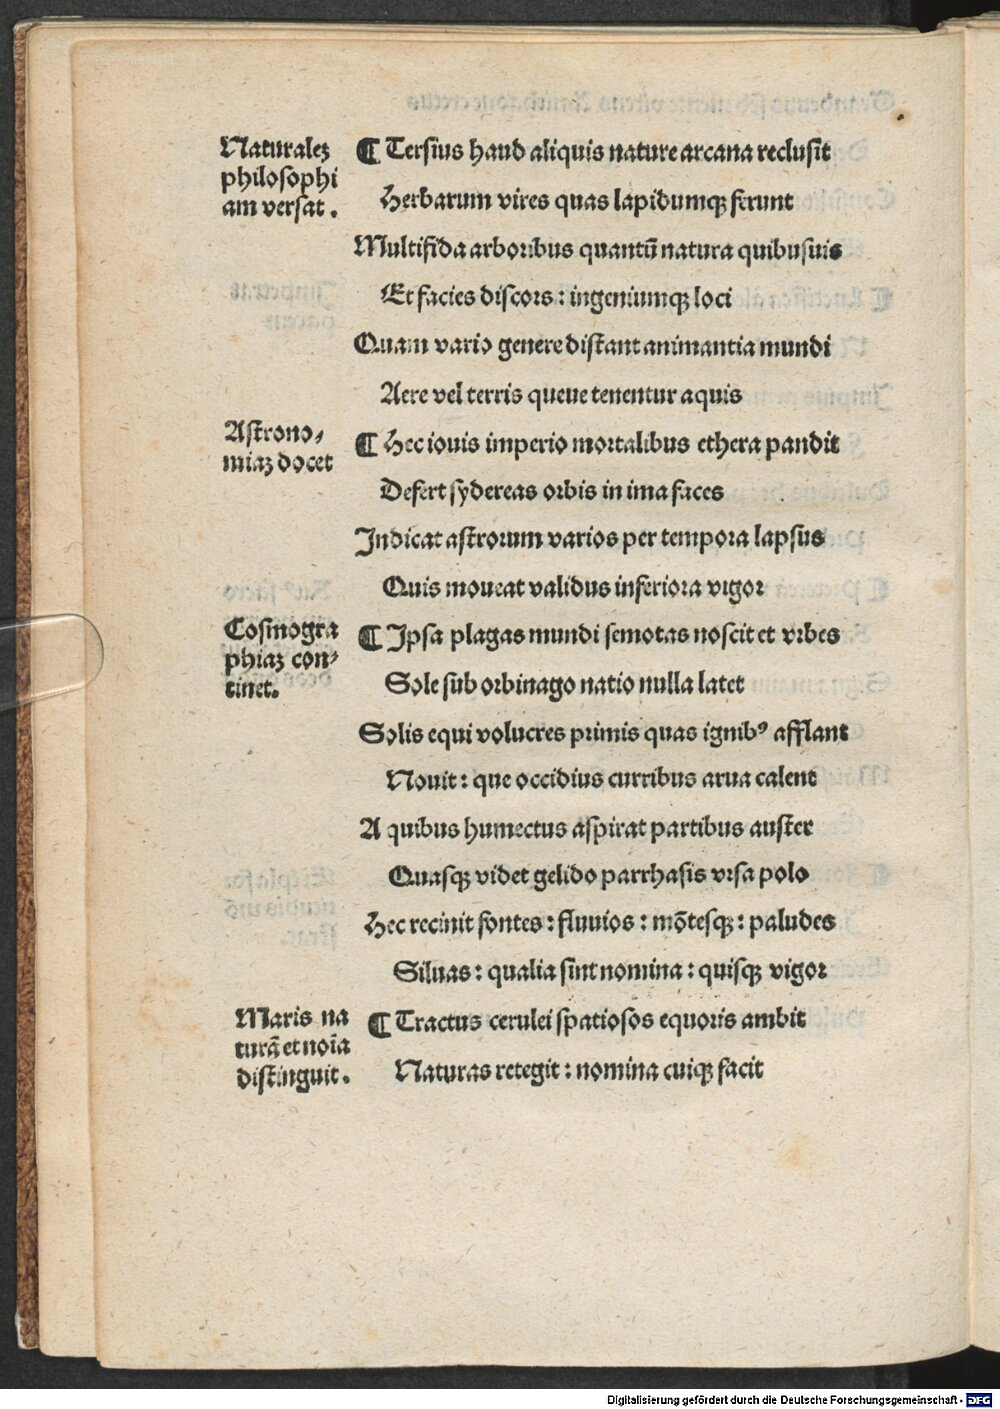 Naturaleꝫ
philosophi
am versat.
¶ Tersius haud aliquis nature arcana reclusit
Herbarum vires quas lapidumqꝫ ferunt
Multifida arboribus quantũ natura quibusuis
Et facies discors: ingeniumqꝫ loci
Quam vario genere distant animantia mundi
Aere vel terris queue tenentur aquis
Astrono-
miaꝫ docet
¶ Hec iouis imperio mortalibus ethera pandit
Defert sydereas orbis in ima faces
Indicat astrorum varios per tempora lapsus
Quis moueat validus inferiora vigor
Cosmogra
phiaꝫ con-
tinet.
¶ Ipsa plagas mundi semotas noscit et vrbes
Sole sub orbinago natio nulla latet
Solis equi volucres primis quas ignibꝰ afflant
Nouit: que occidius curribus arua calent
A quibus humectus aspirat partibus auster
Quasqꝫ videt gelido parrhasis vrsa polo
Hec recinit fontes: fluuios: mõtesqꝫ: paludes
Siluas: qualia sint nomina: quisqꝫ vigor
Maris na
turã et noĩa
distinguit.
¶ Tractus cerulei spatiosos equoris ambit
Naturas retegit: nomina cuiqꝫ facit
Digitalisierung gefördert durch die Deutsche Forschungsgemeinschaft - DFG